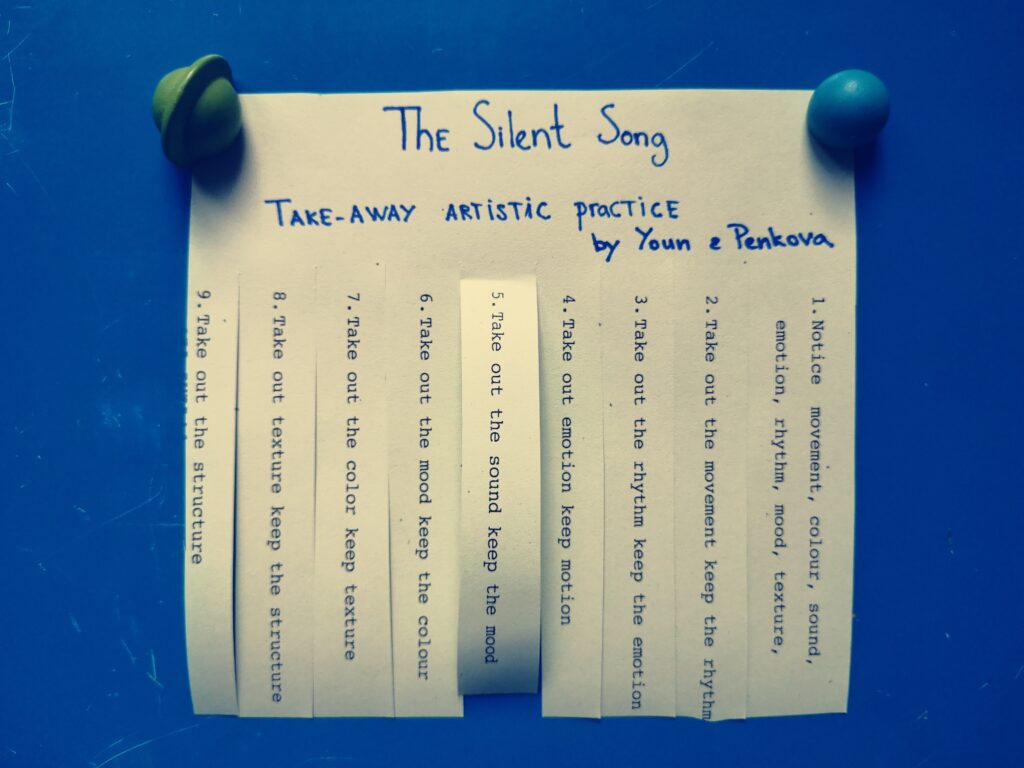 The Silent Song
TAKE-AWAY ARTISTIC practice
by Youn e Penkova
1. Notice movement, colour, sound,
emotion, rhythm, mood, texture,
2. Take out the movement keep the rhythm
3. Take out the rhythm keep the emotion
4. Take out emotion keep motion
5. Take out the sound keep the mood
6. Take out the mood keep the colour
7. Take out the color keep texture
8. Take out texture keep the structure
9. Take out the structure